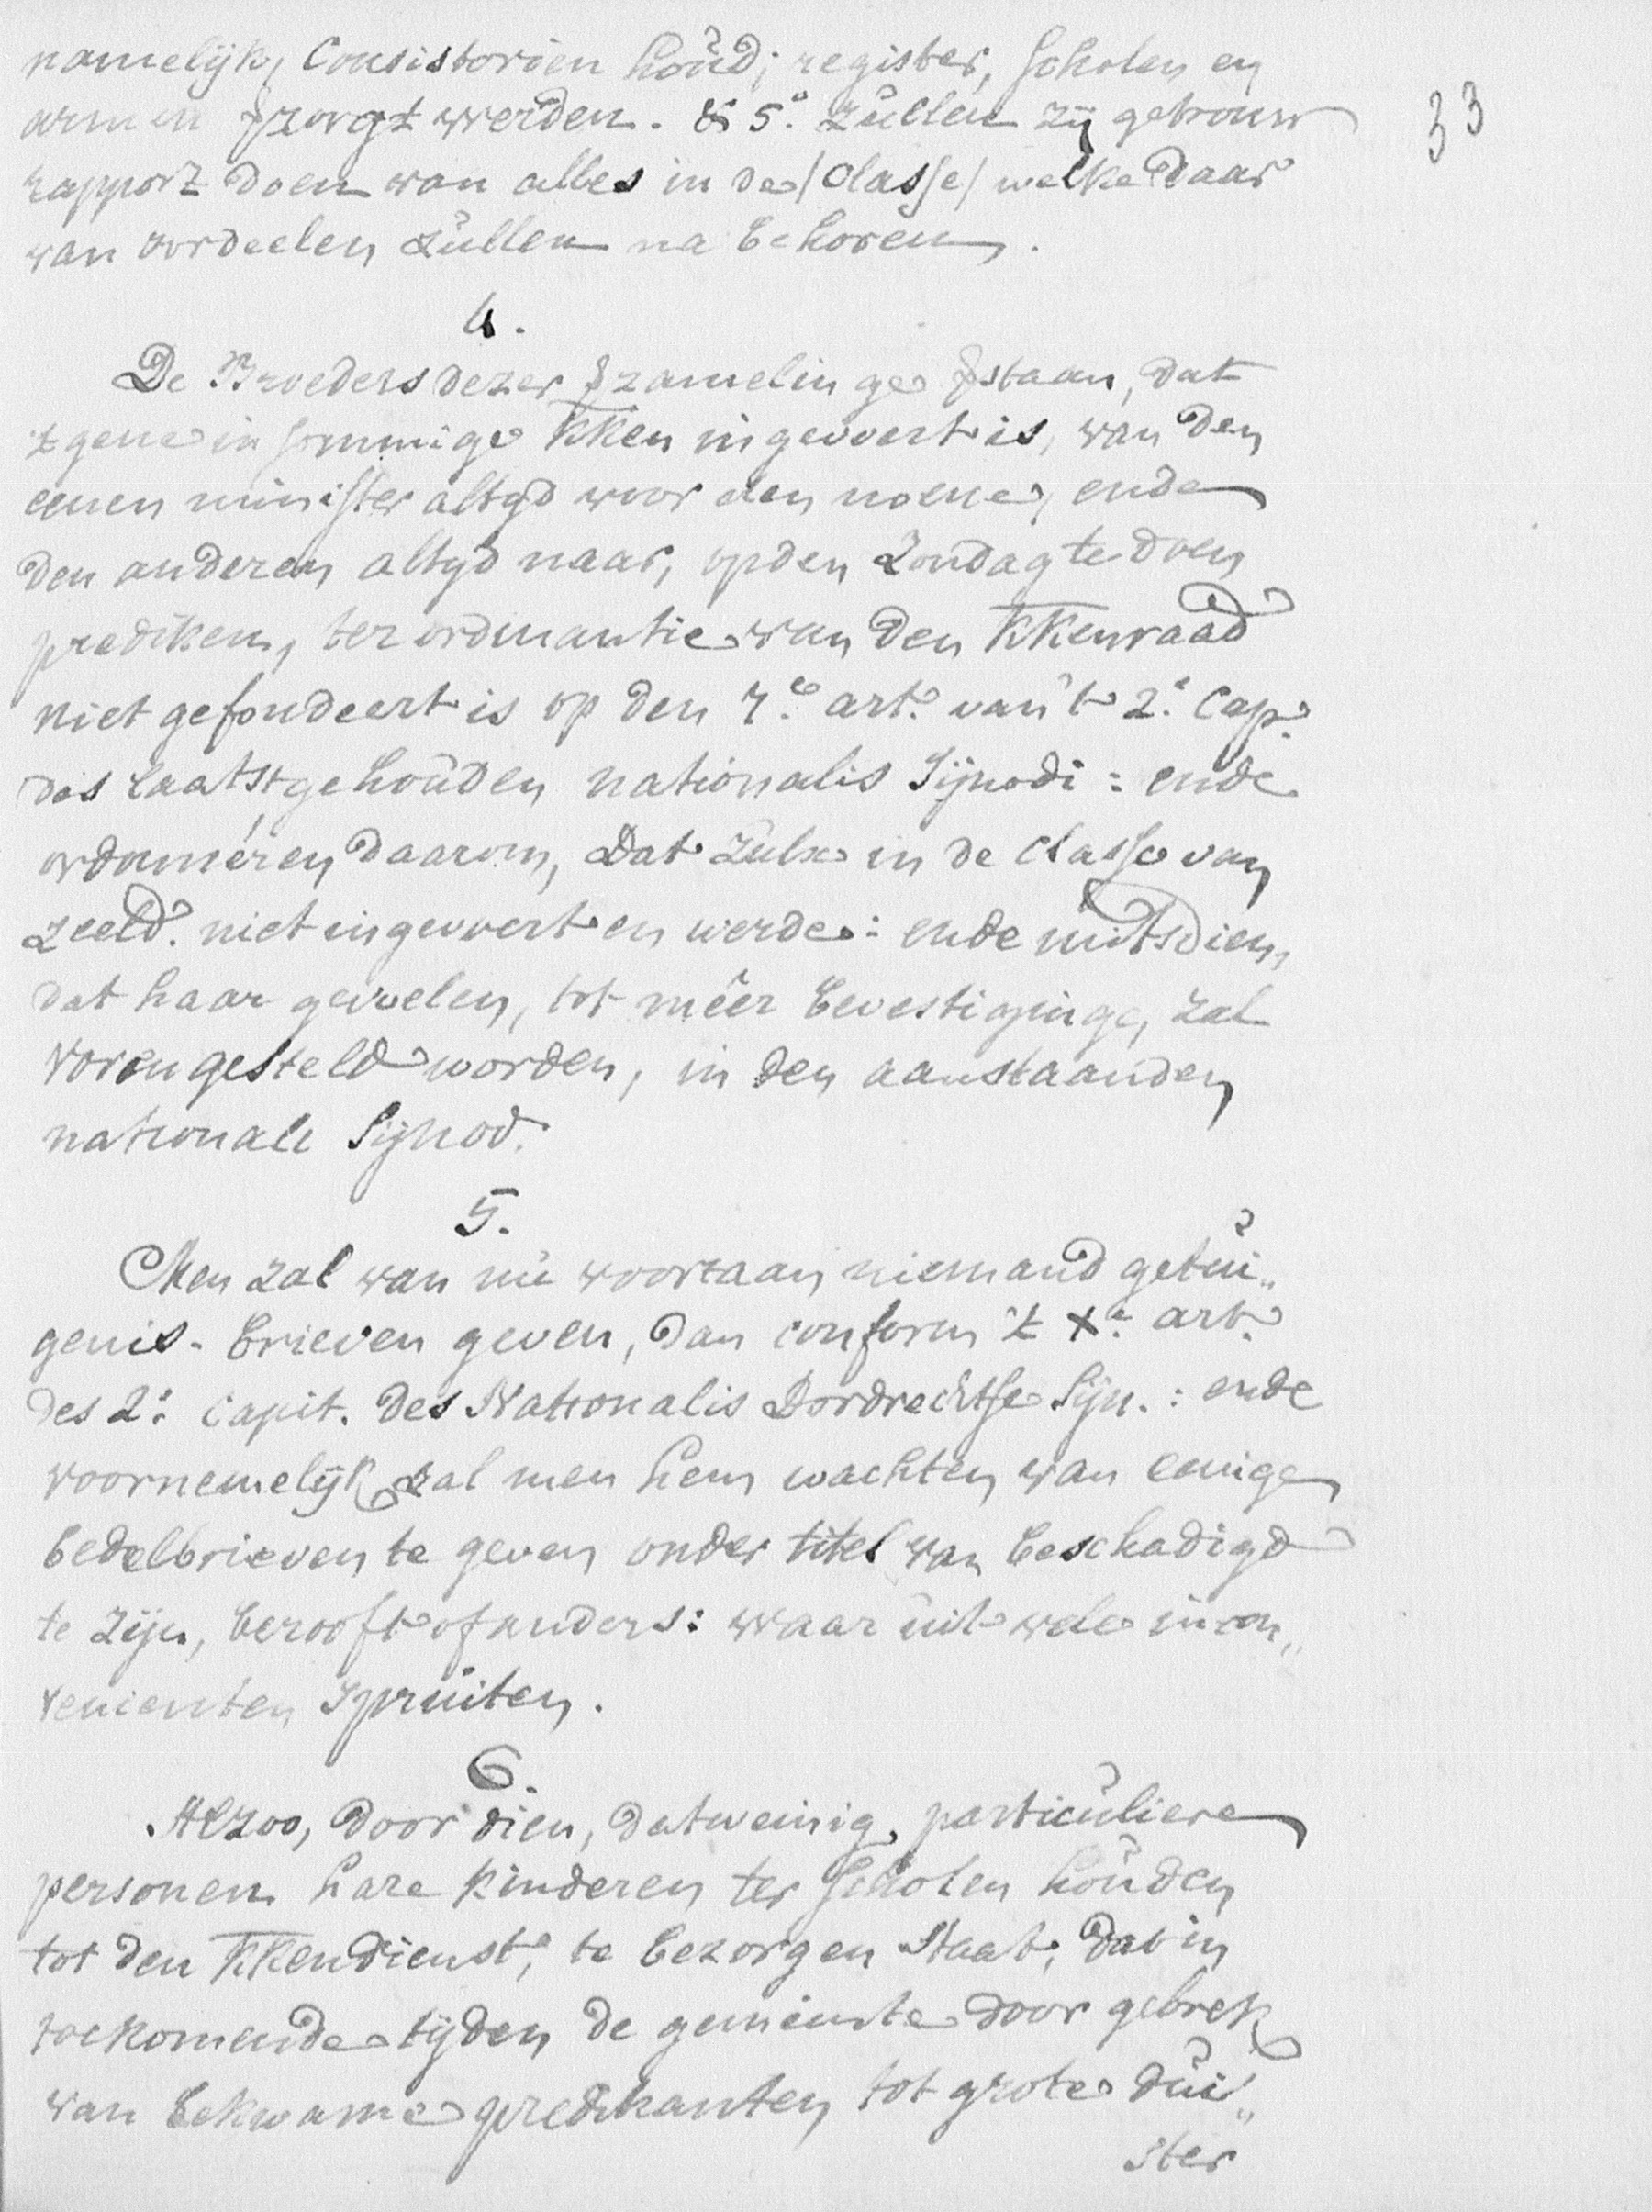 namelijk, Consistorien houd; register, scholen en
armen vzorgt werden. & 5.° zullen zij getrouw
rapport doen van alles in de /Classe/ welke daar
van oordeelen zullen na behoren.
33
4.
De Broeders dezer vzamelinge vstaan, dat
't gene in sommige KKen ingevoert is, van den
eenen minister altyd voor den noene, ende
den anderen altyd naar, op den Zondag te doen
prediken, ter ordinantie van den KKenraad
niet gefondeert is op den 7.e art. van 't 2.e Cap.
des laatstgehouden nationalis Sijnodi: ende
ordonneren daarom, Dat zulx in de Classe van
Zeeld. niet ingevoert en werde: ende mitsdien,
dat haar gevoelen, tot meer bevestiginge, zal
voren gesteld worden, in den aanstaanden
nationale Sijnod.
5.
Men zal van nu voortaan niemand getui„
genis-brieven geven, dan conform 't Xe. art.
des 2.e capit. des Nationalis Dordrechtse Sijn.: ende
voornemelijk zal men hem wachten van eenige
bedelbrieven te geven onder titel van beschadigd
te zijn, berooft of anders: waar uit vele incon„
venienten spruiten.
6.
Alzoo, door dien, dat weinig particuliere
personen hare kinderen ter scholen houden
tot den KKendienst, te bezorgen staat, dat in
toekomende tijden de gemeinte door gebrek
van bekwame predikanten tot grote dui„
ster